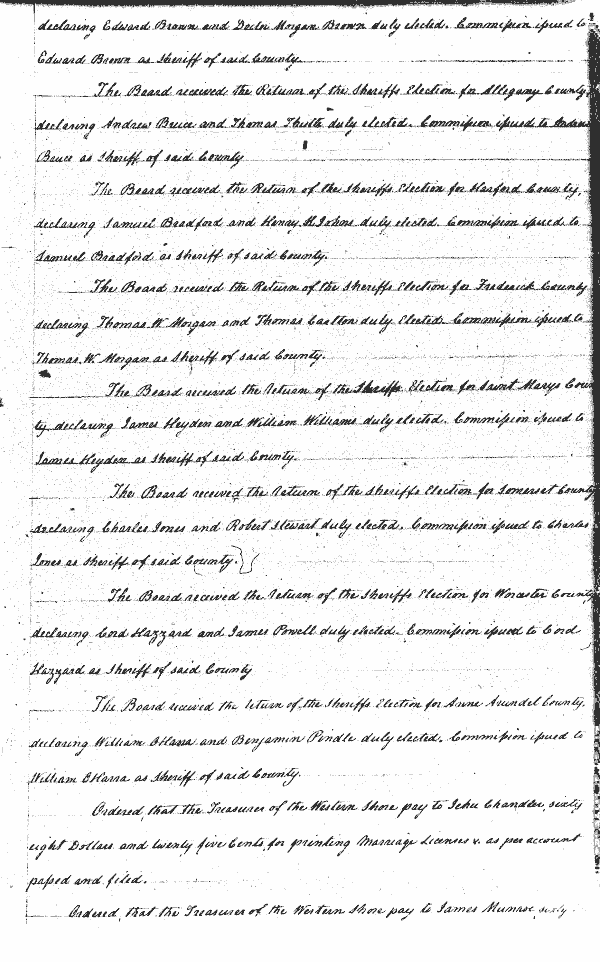 declaring Edward Brown and Doctor Morgan Brown duly elected. Commission issued to
Edward Brown as Sheriff of said County.
The Board received the Return of the Sheriffs Election for Allegany County,
declaring Andrew Bruce and Thomas Thistle duly elected. Commission issued to Andrew
Bruce as Sheriff of said County
The Board received the Return of the Sheriffs Election for Harford County,
declaring Samuel Bradford and Henry H Johns duly elected. Commission issued to
Samuel Bradford as Sheriff of said County.
The Board received the Return of the Sheriffs Election for Frederick County
declaring Thomas W Morgan and Thomas Carlton duly Elected. Commission issued to
Thomas. W. Morgan as Sheriff of said County.
The Board received the return of the Sheriffs Election for Saint Marys Coun
ty declaring James Heyden and William Williams duly elected. Commission issued to
James Heyden as Sheriff of said County.
The Board received the return of the Sheriffs Election for Somerset County
declaring Charles Jones and Robert Stewart duly elected. Commission issued to Charles
Jones as Sheriff of said County.
The Board received the return of the Sheriffs Election for Worcester County
declaring Cord Hazzard and James Powell duly elected. Commission issued to Cord
Hazzard as Sheriff of said County
The Board received the return of the Sheriffs Election for Anne Arundel County,
declaring William OHarra and Benjamin Pindle duly elected. Commission issued to
William OHarra as Sheriff of said County.
Ordered, that the Treasurer of the Western Shore pay to Jehu Chandler, sixty
eight Dollars and twenty five Cents, for printing Marriage Licenses &. as per account
passed and filed.
Ordered, that the Treasurer of the Western Shore pay to James Munroe sixty